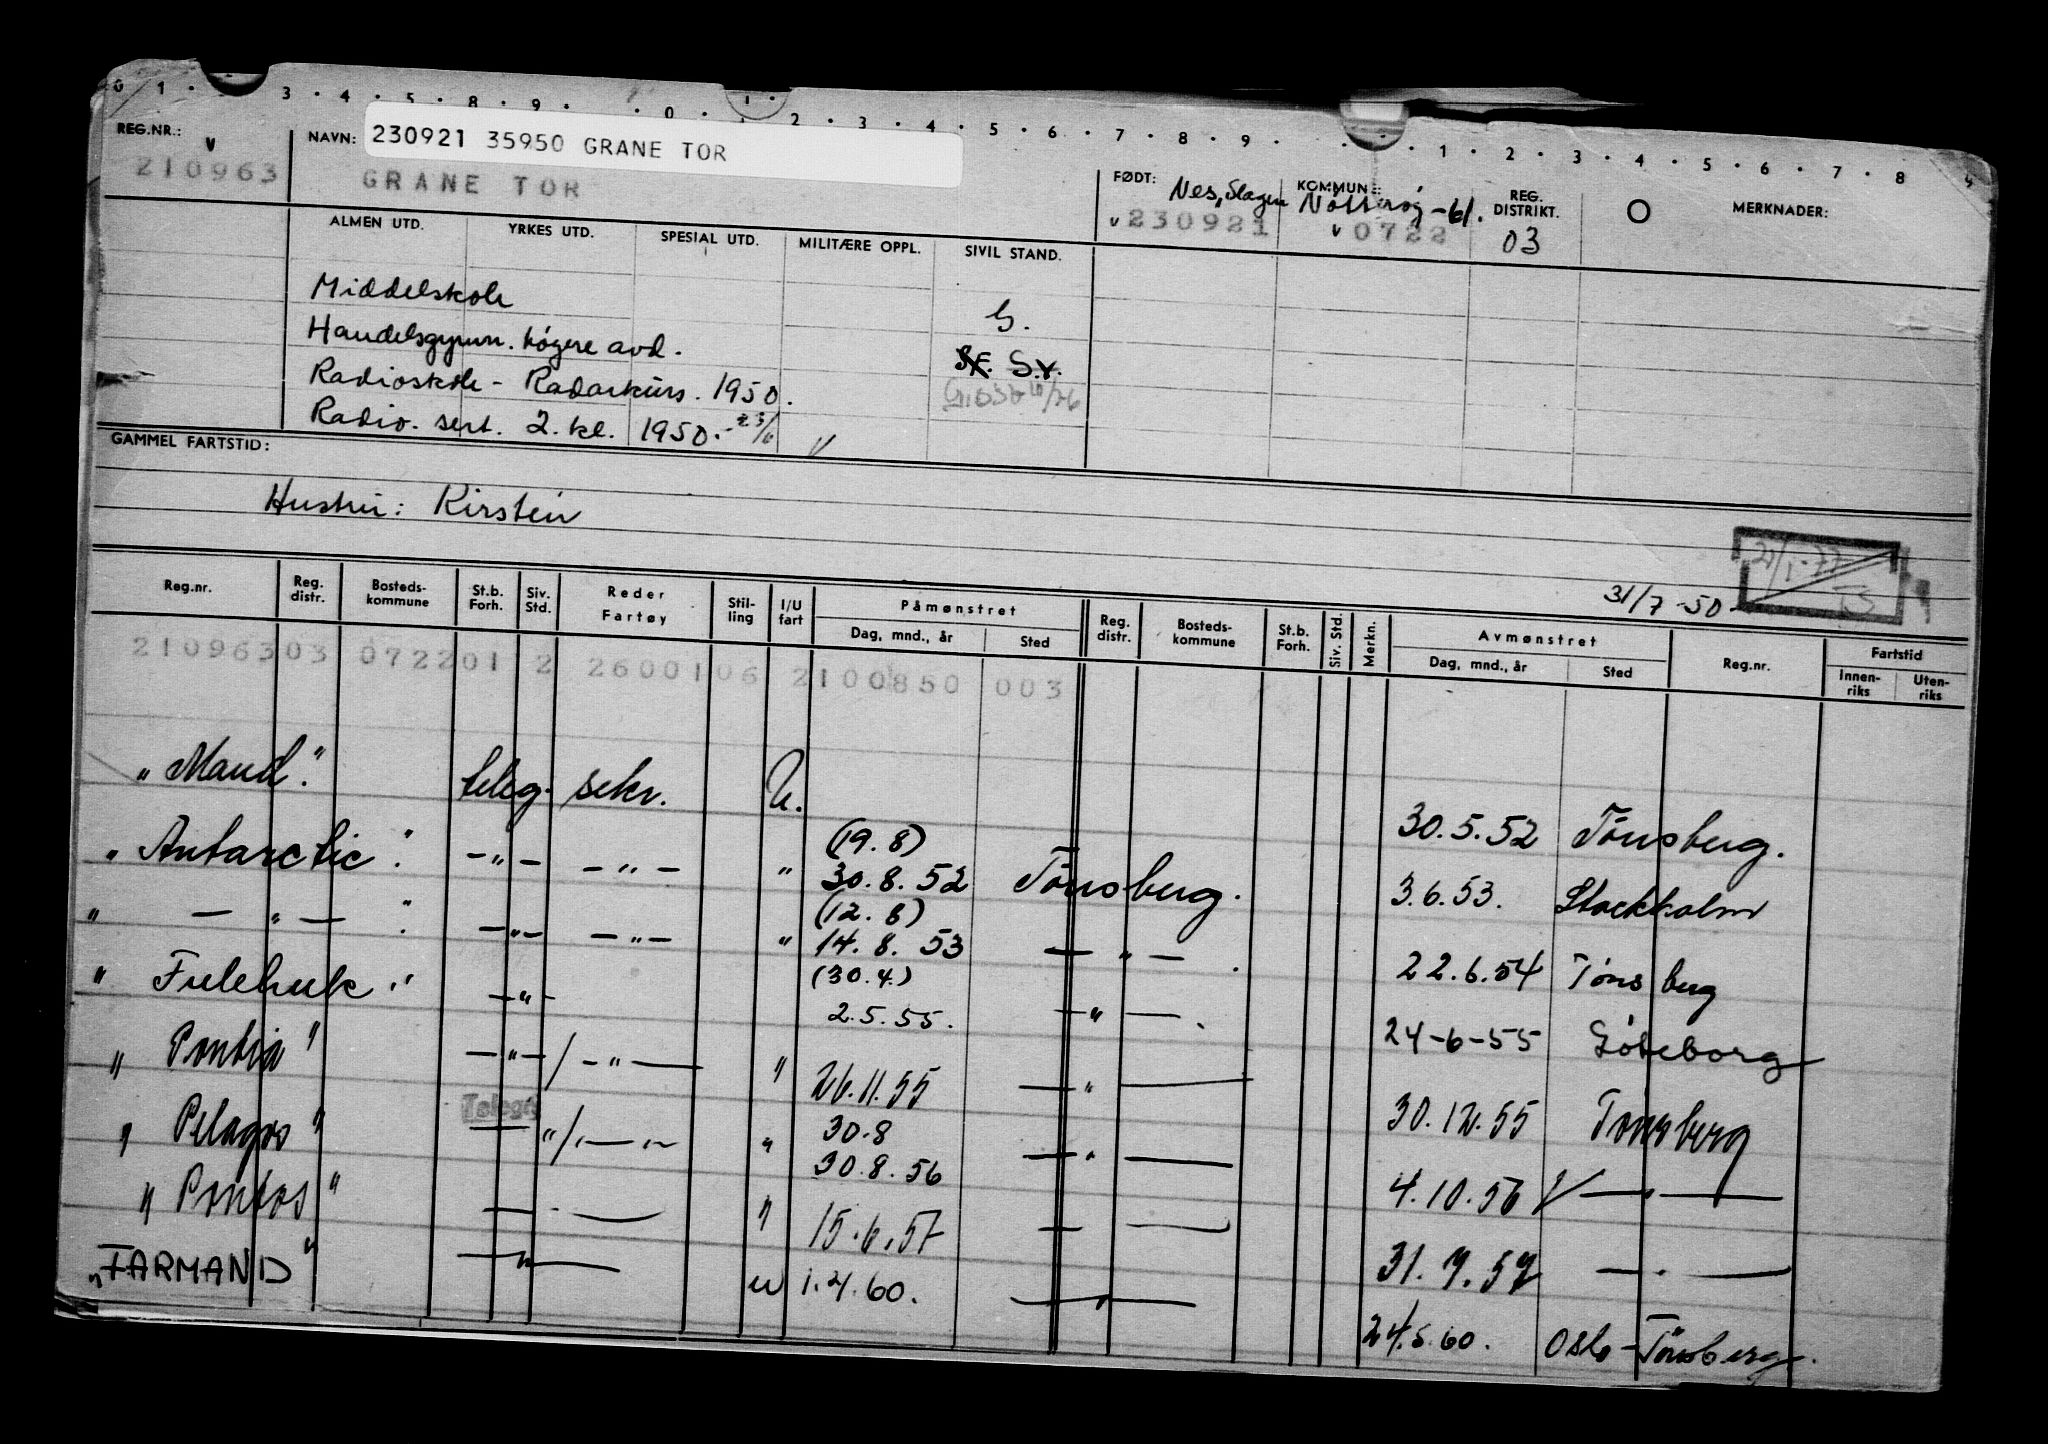 0 1 · 3 · 4 · 5 · 8 · 9 · · 0 · 1 · 2 · 3 · 4 · 5 · 6 · 7 · 8 · 9 · · 1 · 2 · 3 · 4 · 5 · 6 · 7 · 8
REG.NR.: v
210963
NAVN: 230921 35950 GRANE TOR
GRANE TOR
FØDT: Nes, Slagen
v 230921
KOMMUNE: Nøtterøy -61.
v 0722
REG. DISTRIKT.
03
O
MERKNADER:
ALMEN UTD. YRKES UTD. SPESIAL UTD. MILITÆRE OPPL. SIVIL STAND.
Middelskole
G.
Handelsgymn. høgere avd.
S.Y.
Radioskole - Radarkurs. 1950.
Radio. sert. 2. kl. 1950.- 23/6
GAMMEL FARTSTID:
Hustru: Kirsten
31/7-50
21/1-77
Reg.nr. Reg. distr. Bosteds-kommune St.b. Forh. Siv. Std. Reder Fartøy Stil-ling I/U fart Påmønstret Dag, mnd., år Sted Reg. distr. Bosteds-kommune St.b. Forh. Siv. Std. Merkn. Avmønstret Dag, mnd., år Sted Reg.nr. Fartstid Innen-riks Uten-riks
210963 03 0722 01 2 26001 06 2100850 003
"Maud." teleg. sekr. U. 30.5.52 Tönsberg.
(19.8)
"Antarctic". -"- -"- " 30.8.52 Tönsberg. 3.6.53. Stockholm
(12.8)
" -"- ". -"- -"- " 14.8.53 -"-. 22.6.54 Tönsberg
(30.4.)
"Fulehuk." -"- 2.5.55. -"-. 24-6-55 Göteborg
"Pontia" -"-/-"- " 26.11.55 -"- 30.12.55 Tonsberg
Telegr
30.8
"Pelagos" -"/"-"- " 30.8.56 -"- 4.10.56 -"-
"Pontos" - " - " 15.6.57 - - 31.7.57 -"-
"FARMAND" -"- u 1.4.60. -"- 24.5.60. Oslo-Tönsberg.